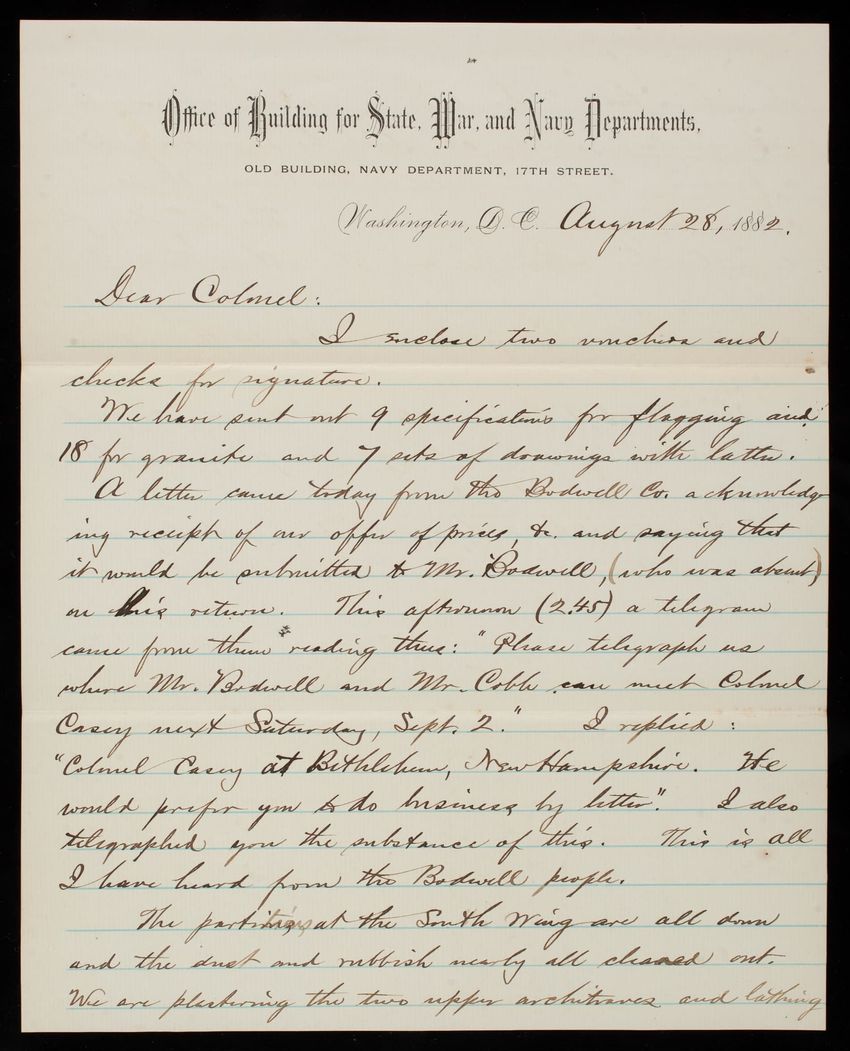 Office of Building for State, War, and Navy Departments,
OLD BUILDING, NAVY DEPARTMENT, 17TH STREET.
Washington, D. C. August 28, 1882.
Dear Colonel:
I enclose two vouchers and
checks for signature.
We have sent out 9 specifications for flagging and
18 for granite and 7 sets of drawings with latter.
A letter came today from the Bodwell Co. acknowledg-
ing receipt of our offer of prices, &c. and saying that
it would be submitted to Mr. Bodwell, (who was absent)
on his return. This afternoon (2.45) a telegram
came from them reading thus: "Please telegraph us
where Mr. Bodwell and Mr. Cobb can meet Colonel
Casey next Saturday, Sept. 2." I replied:
"Colonel Casey at Bethlehem, New Hampshire. He
would prefer you to do business by letter". I also
telegraphed you the substance of this. This is all
I have heard from the Bodwell people.
The partitions at the South Wing are all down
and the dust and rubbish nearly all cleaned out.
We are plastering the two upper architraves and lathing